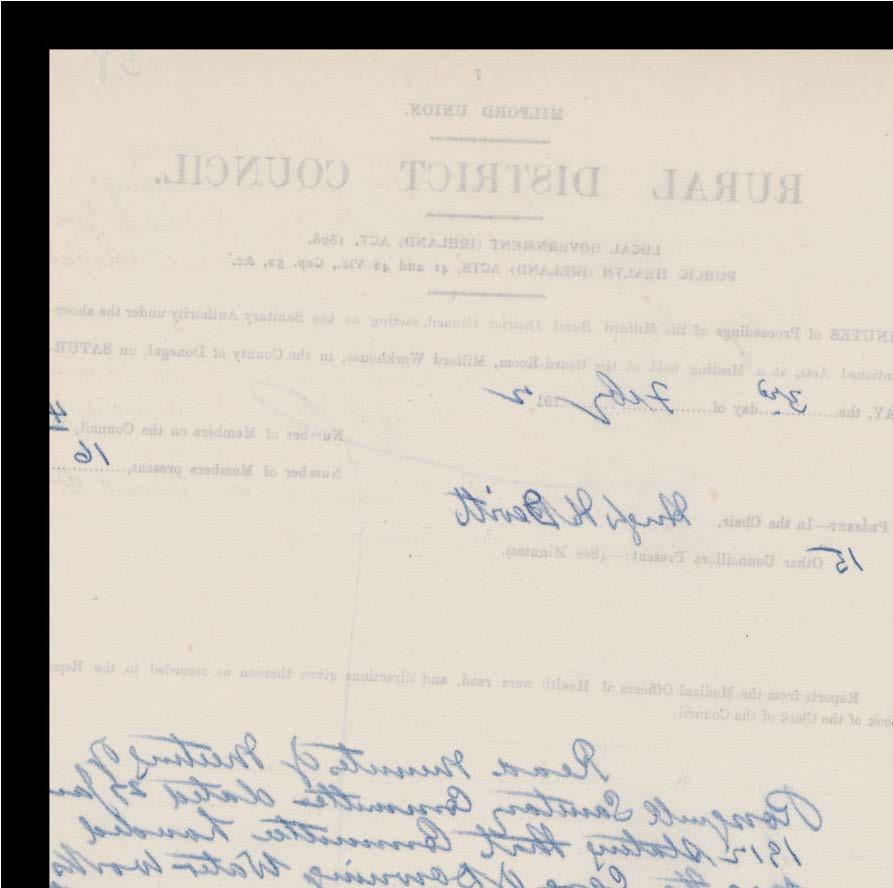 7
58
MILFORD UNION.
RURAL DISTRICT COUNCIL.
LOCAL GOVERNMENT (IRELAND) ACT, 1898.
PUBLIC HEALTH (IRELAND) ACTS, 41 and 42 Vic., Cap. 52, &c.
INUTES of Proceedings of the Milford Rural District Council, acting as the Sanitary Authority under the above-
ntioned Acts, at a Meeting held at the Board-Room, Milford Workhouse, in the County of Donegal, on SATUR-
AY, the 3rd day of Feby 1912
Number of Members on the Council, 4
Number of Members present, 16
PRESENT—In the Chair, Hugh McDevitt
15 Other Councillors Present:—(See Minutes).
Reports from the Medical Officers of Health were read, and directions given thereon as recorded in the Repo
ook of the Clerk of the Council.
Read minutes of meeting of
Committee dated 27 Jan
1912 stating that Committee handed
Water Works